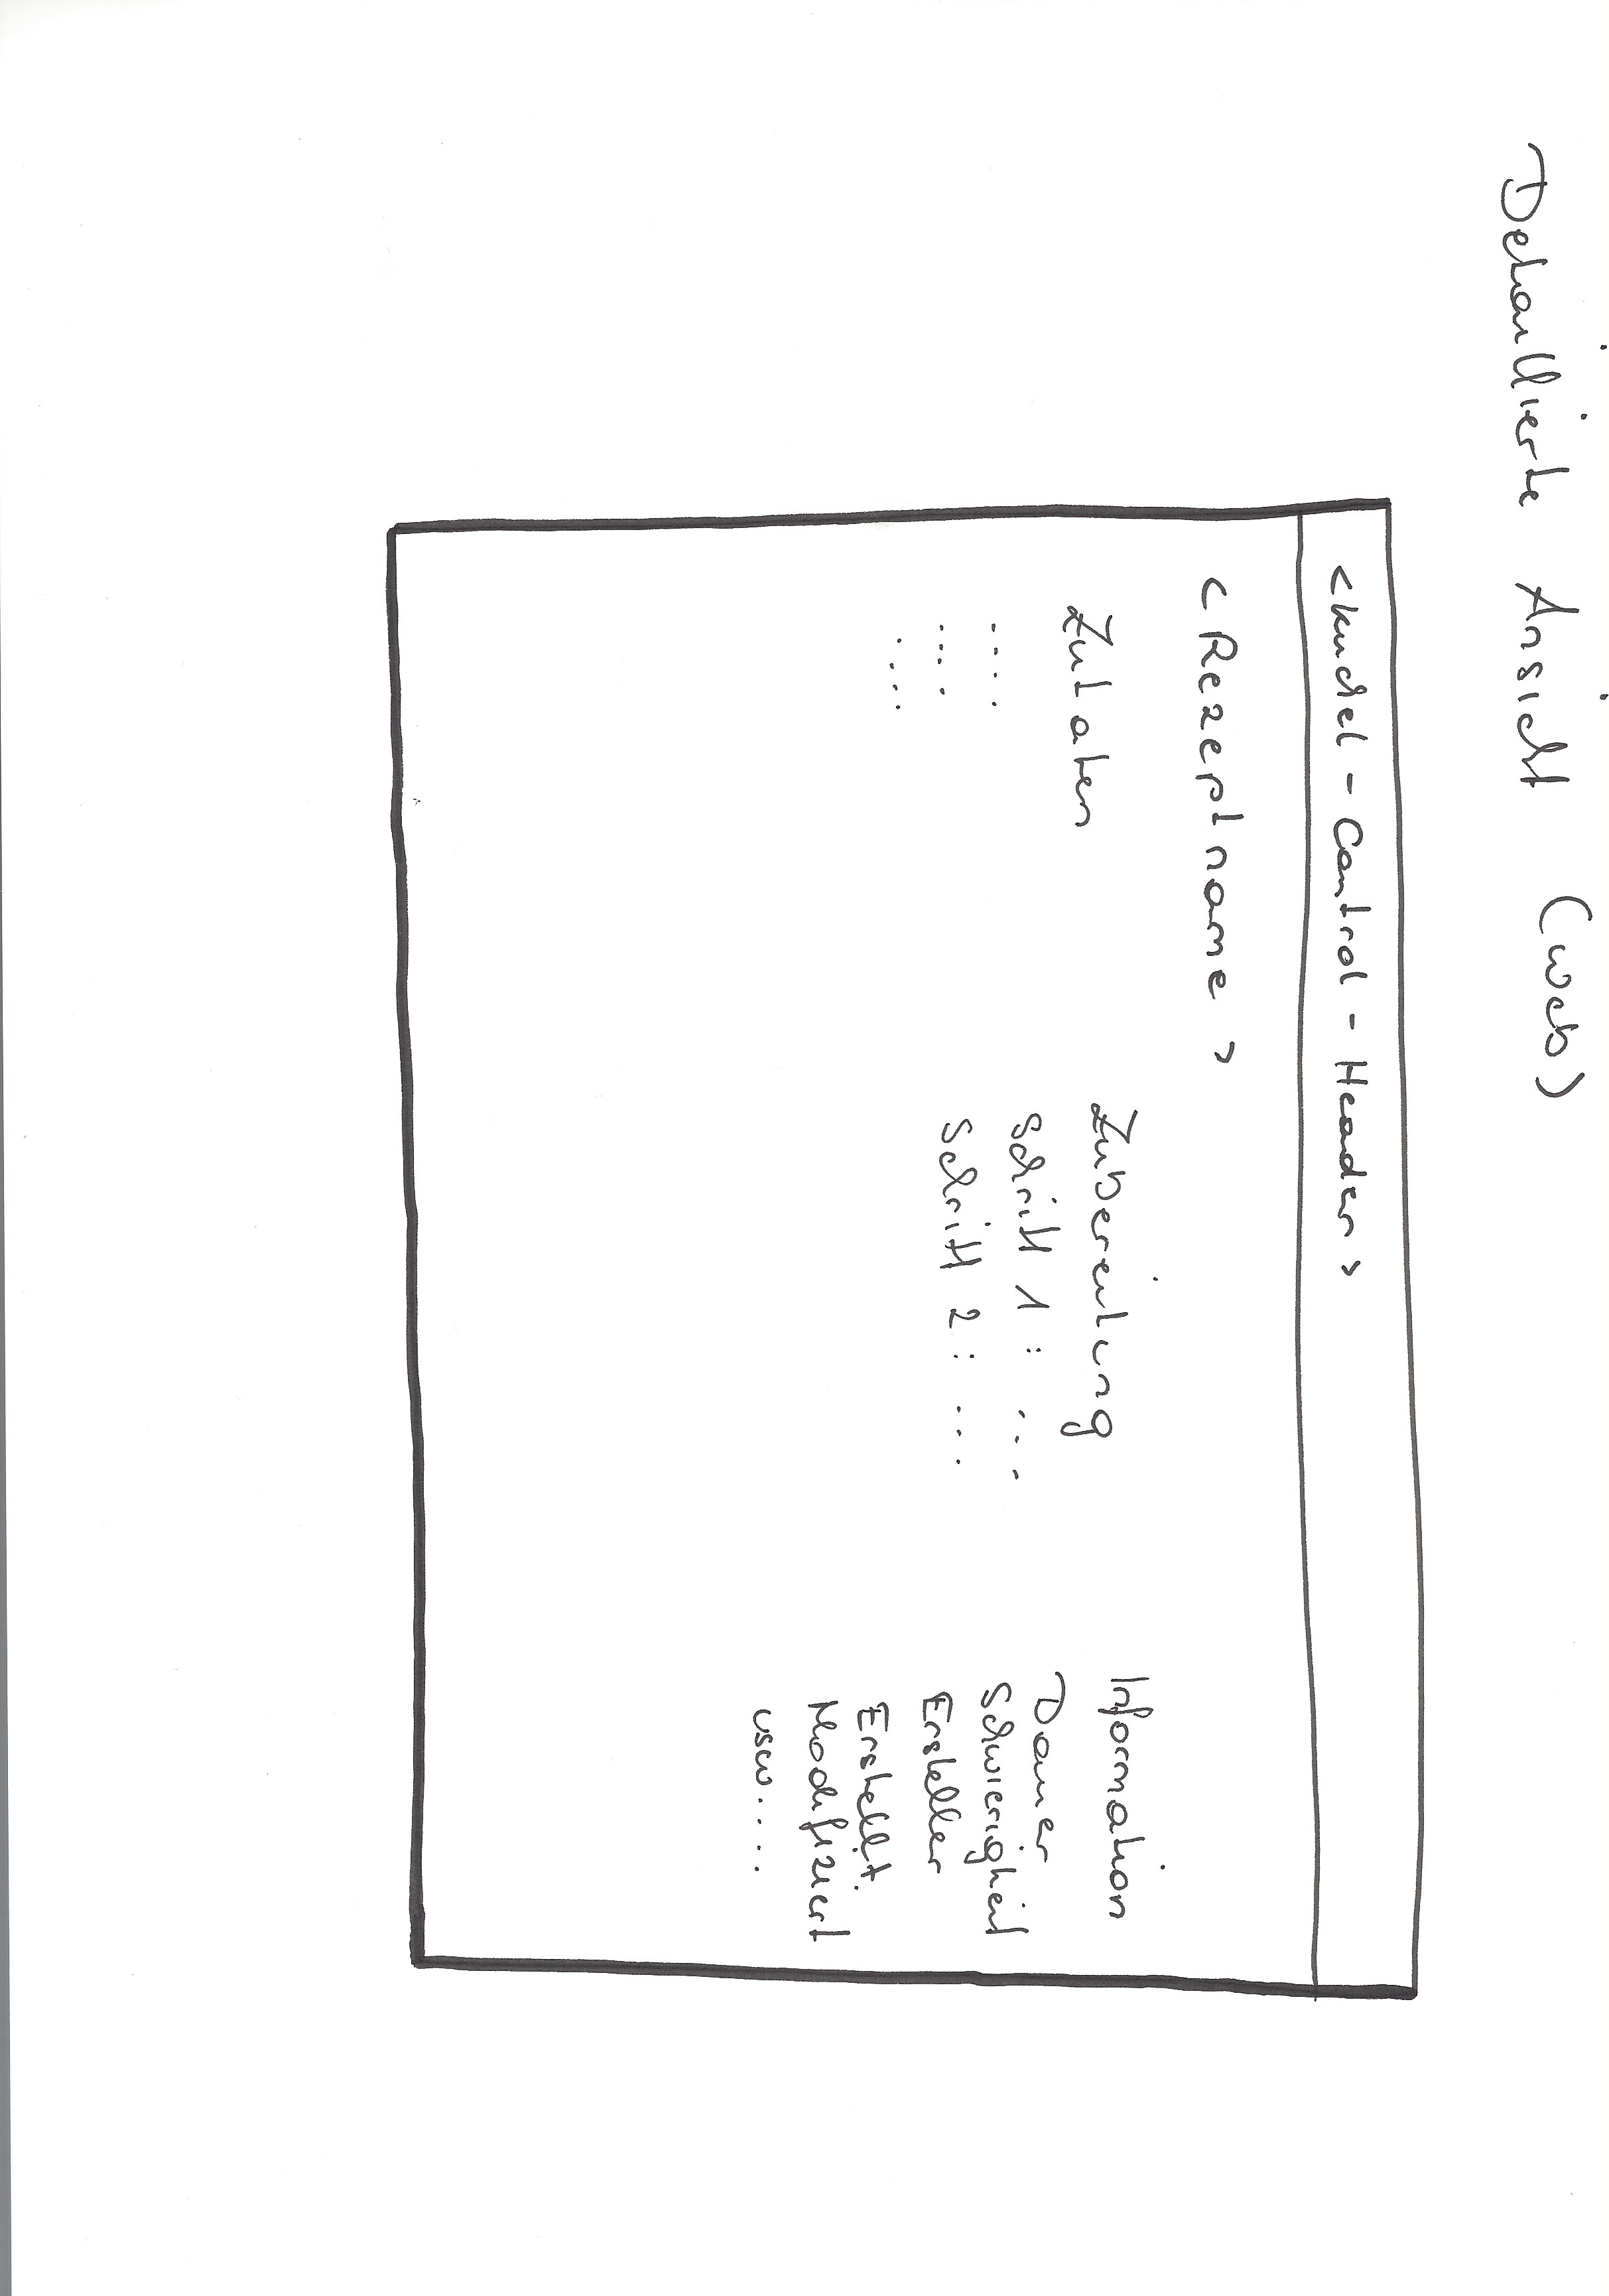 Detaillierte Ansicht (Web)
<Kuchel - Control - Header>
<Rezeptname>
Zutaten
....
....
....
Zubereitung
Schritt 1: ...
Schritt 2: ...
Information
Dauer
Schwierigkeit
Ersteller
Erstellt
Modifiziert
usw....